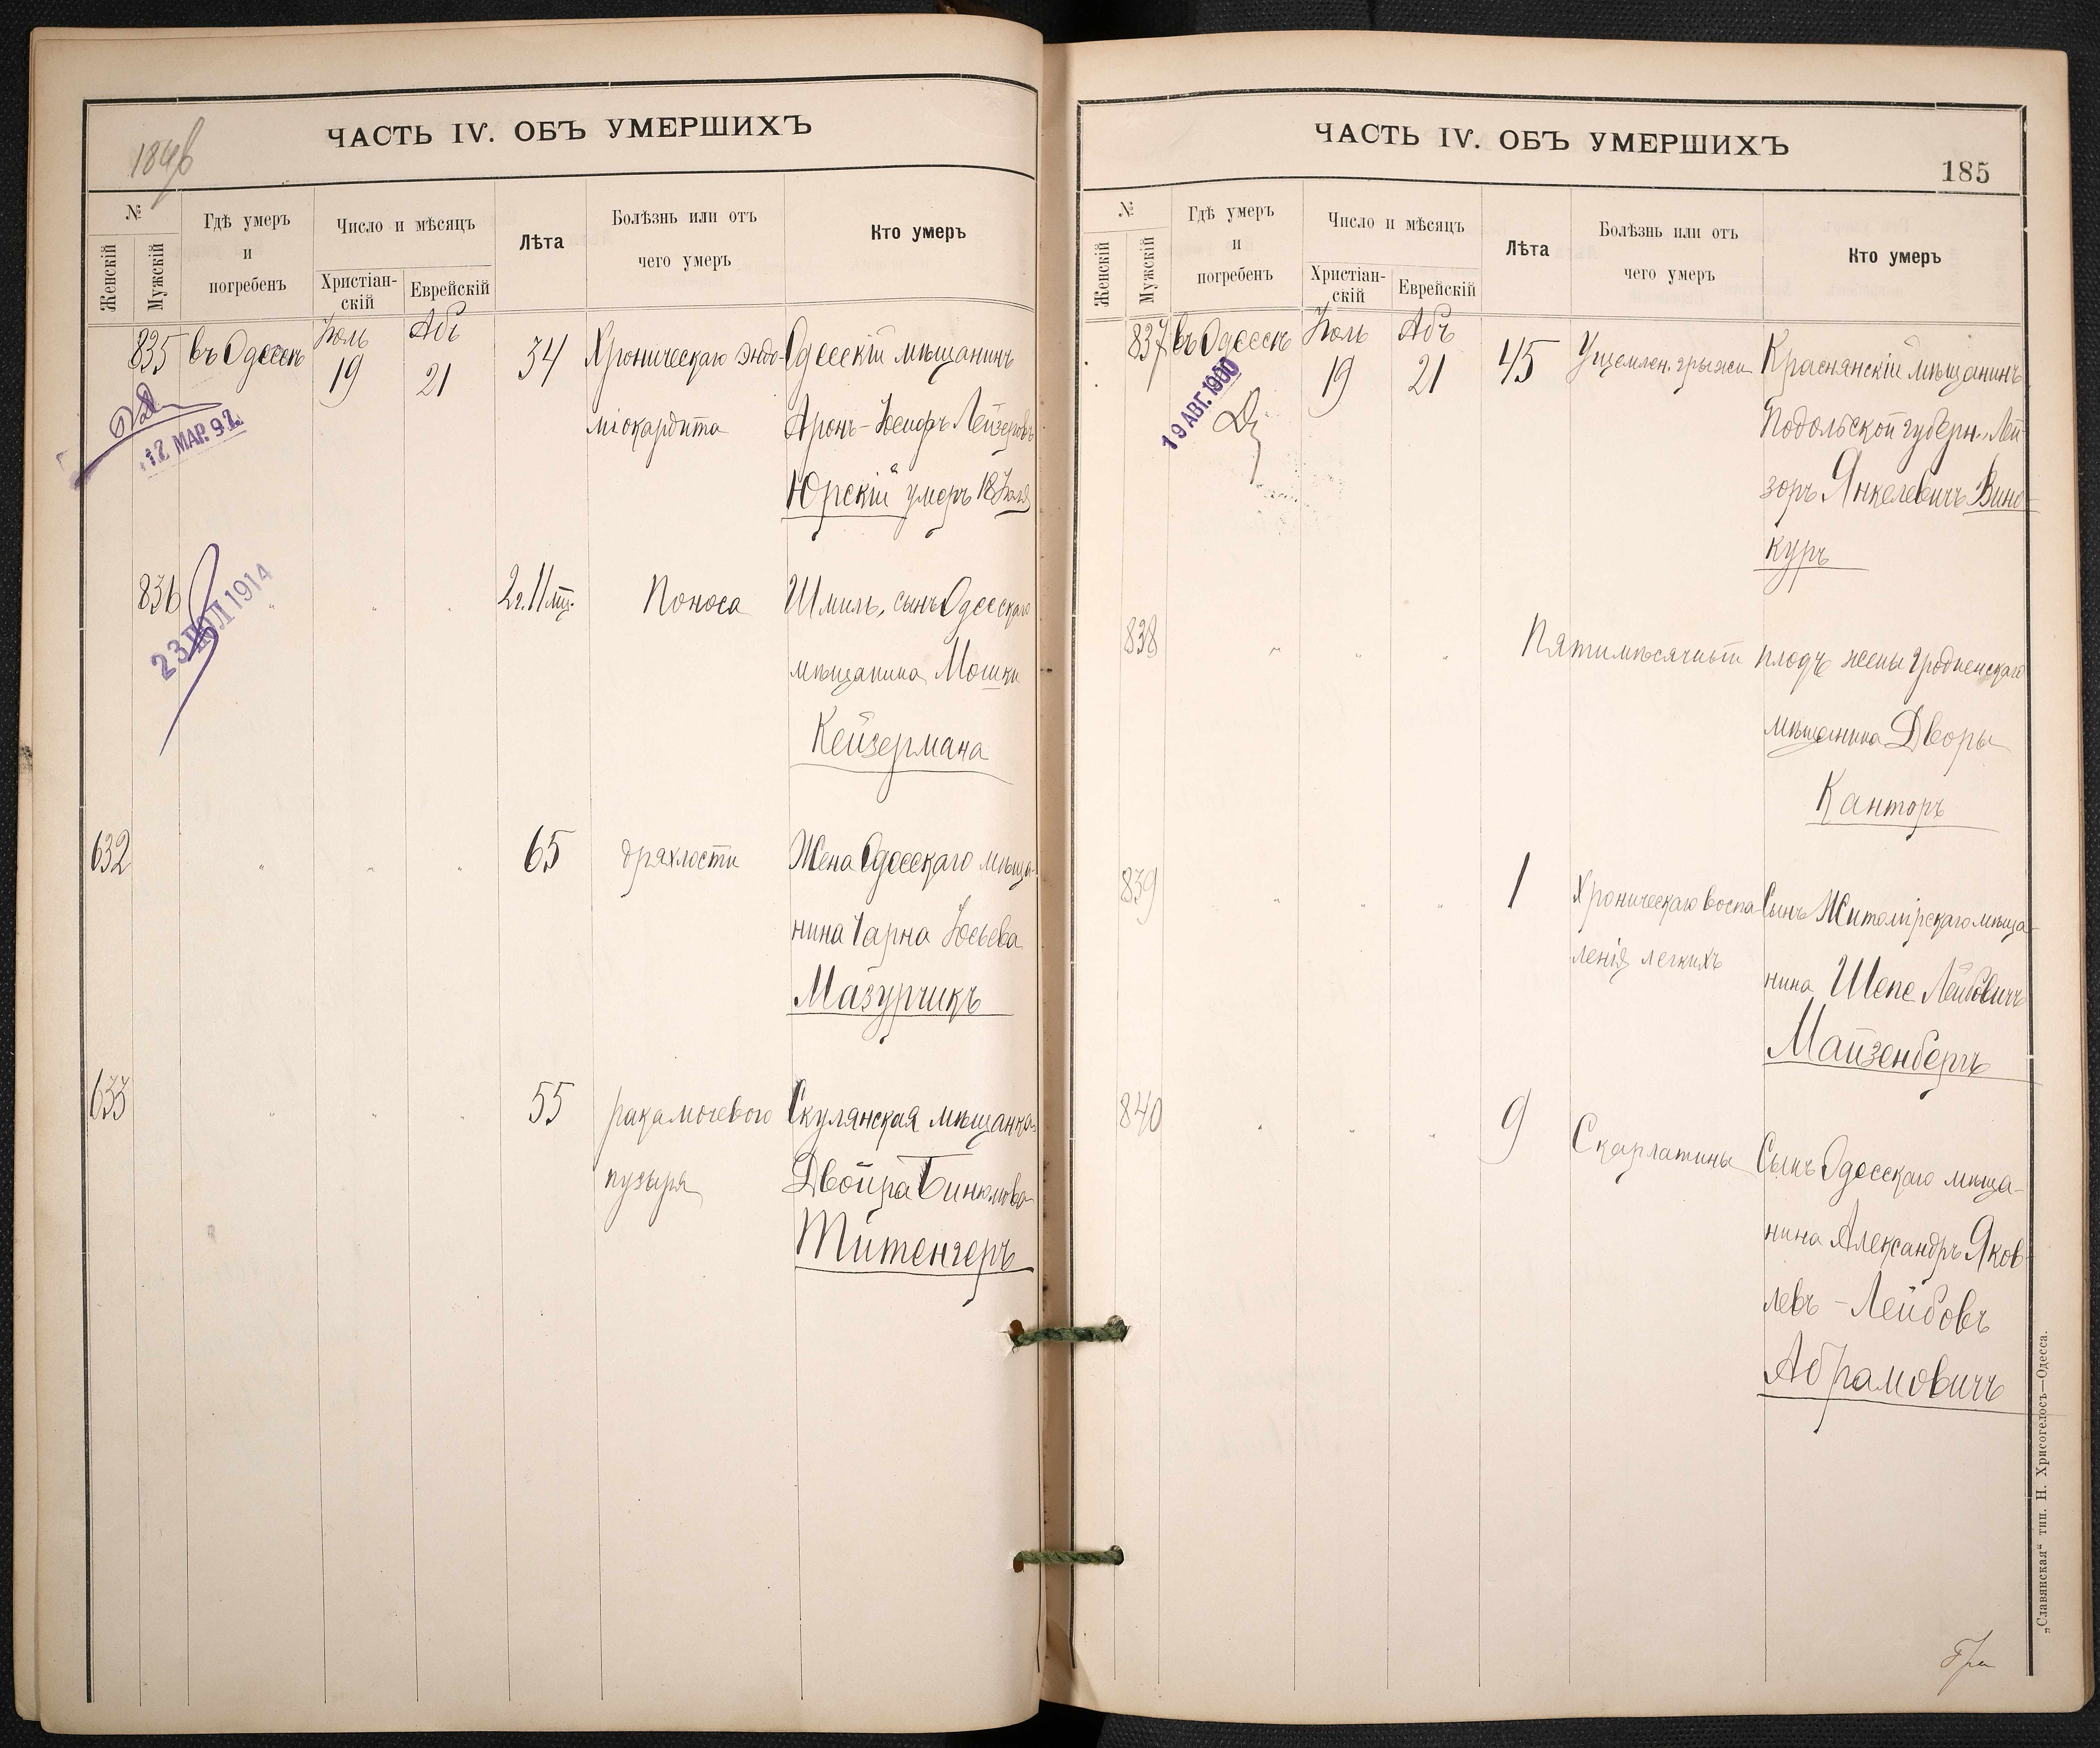 184б
ЧАСТЬ IV. ОБЪ УМЕРШИХЪ
№
Женскій
Мужскій
Гдѣ умеръ
и
погребенъ
Число и мѣсяцъ
Христіан-
скій
Еврейскій
Лѣта
Болѣзнь или отъ
чего умеръ
Кто умеръ
835 въ Одессѣ Іюль 19 Абъ 21 34 Хроническаго эндо- Одесскій мѣщанинъ
міокардита Аронъ-Іосифъ Лейзеровъ
Юрскій умеръ 18 Іюля
12 МАР. 97.
836 " " " 2г. 11 мц. Поноса Шмиль, сынъ Одесскаго
мѣщанина Мошки
Кейзермана
23 ІЮЛ 1914
632 " " " 65 дряхлости Жена Одесскаго мѣща-
нина Чарна Іосьева
Мазурчикъ
633 " " " 55 рака мочевого Скулянская мѣщанка
пузыря Двойра Бинюмова
Титенгеръ
ЧАСТЬ IV. ОБЪ УМЕРШИХЪ
185
№
Женскій
Мужскій
Гдѣ умеръ
и
погребенъ
Число и мѣсяцъ
Христіан-
скій
Еврейскій
Лѣта
Болѣзнь или отъ
чего умеръ
Кто умеръ
837 въ Одессѣ Іюль 19 Абъ 21 45 Ущемлен. грыжи Краснянскій мѣщанинъ
Подольской губерн. Лей-
зоръ Янкелевичъ Вино-
куръ
19 АВГ. 1900
838 " " " Пятимѣсячный плодъ жены Гродненскаго
мѣщанина Дворы
Канторъ
839 " " " 1 Хроническаго воспа- Сынъ Житомірскаго мѣща-
ленія легкихъ нина Шепс Лейбовичъ
Майзенбергъ
840 " " " 9 Скарлатины Сынъ Одесскаго мѣща-
нина Александръ Яков-
левъ - Лейбовъ
Абрамовичъ
„Славянская“ тип. Н. Хрисогелосъ—Одесса.